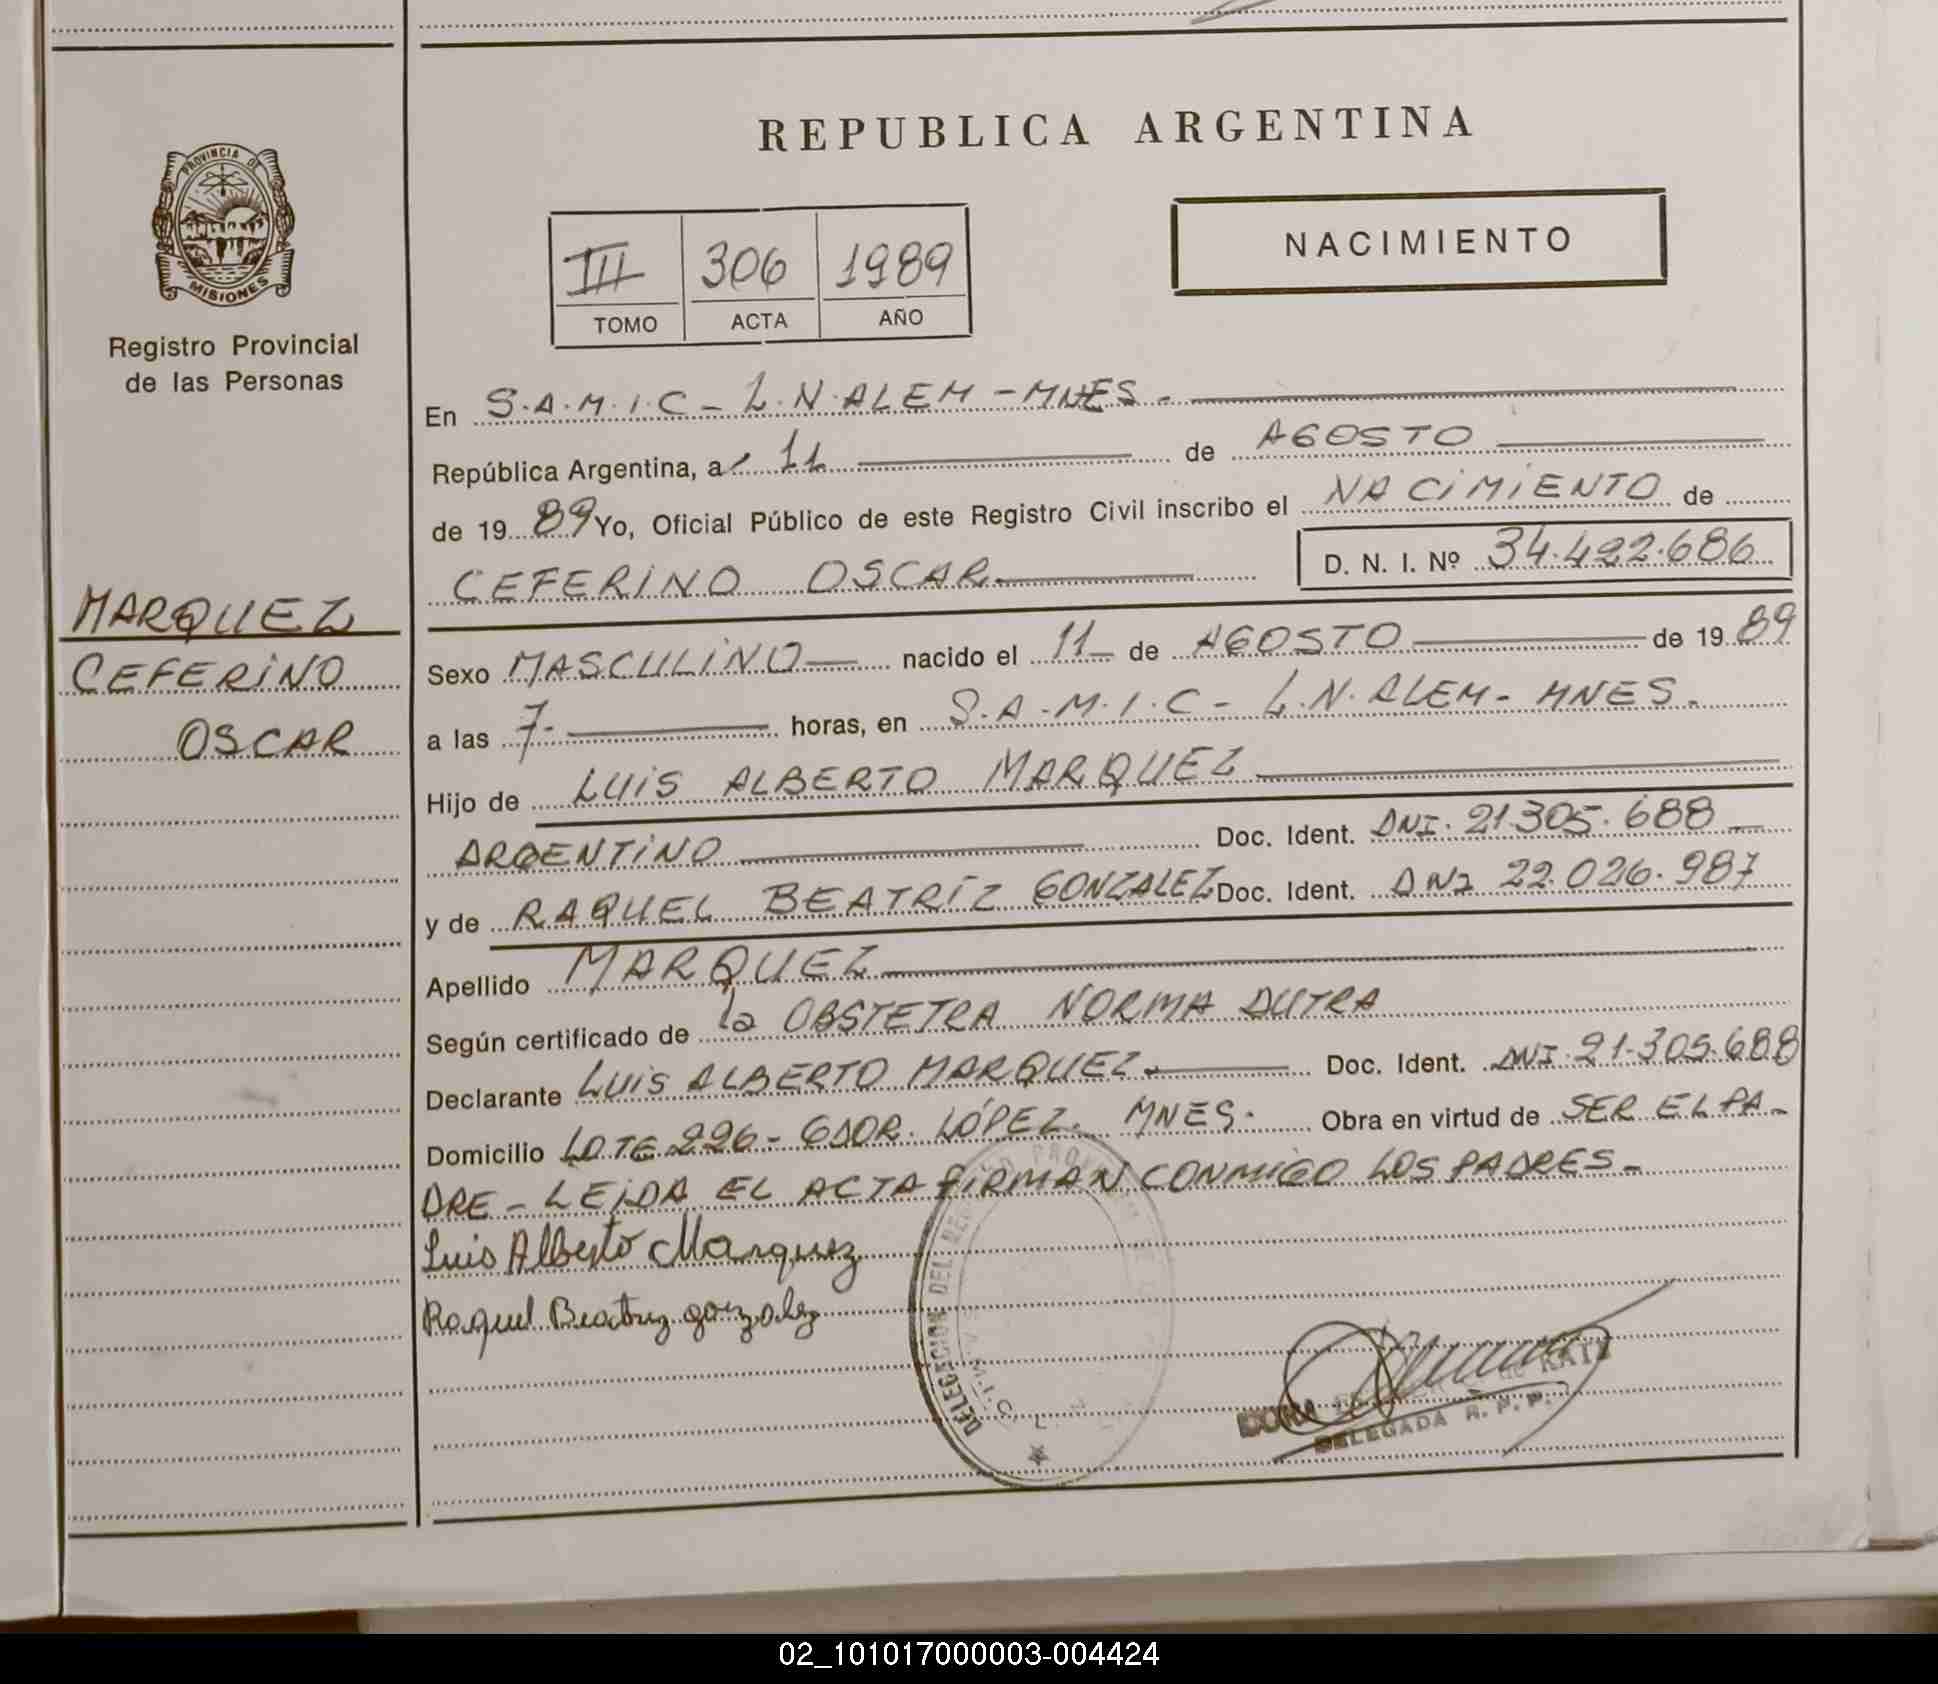 REPUBLICA ARGENTINA
PROVINCIA DE
MISIONES
Registro Provincial
de las Personas
III 306 1989
TOMO ACTA AÑO
NACIMIENTO
En S.A.M.I.C - L.N. ALEM - MNES -
República Argentina, a 11 de AGOSTO
de 19 89 Yo, Oficial Público de este Registro Civil inscribo el NACIMIENTO de
CEFERINO OSCAR D. N. I. Nº 34.492.686
MARQUEZ
CEFERINO
OSCAR
Sexo MASCULINO nacido el 11 de AGOSTO de 19 89
a las 7 horas, en S.A.M.I.C - L.N. ALEM - MNES.
Hijo de LUIS ALBERTO MARQUEZ
ARGENTINO Doc. Ident. DNI. 21.305.688
y de RAQUEL BEATRÍZ GONZALEZ Doc. Ident. DNI 22.026.987
Apellido MARQUEZ
Según certificado de la OBSTETRA NORMA DUTRA
Declarante LUIS ALBERTO MARQUEZ Doc. Ident. DNI 21.305.688
Domicilio LOTE 226 - GDOR. LÓPEZ. MNES. Obra en virtud de SER EL PA-
DRE - LEIDA EL ACTA FIRMAN CONMIGO LOS PADRES -
Luis Alberto Marquez
Raquel Beatriz gonzalez
DELEGACION DEL
DELEGADA R. P. P.
02_101017000003-004424